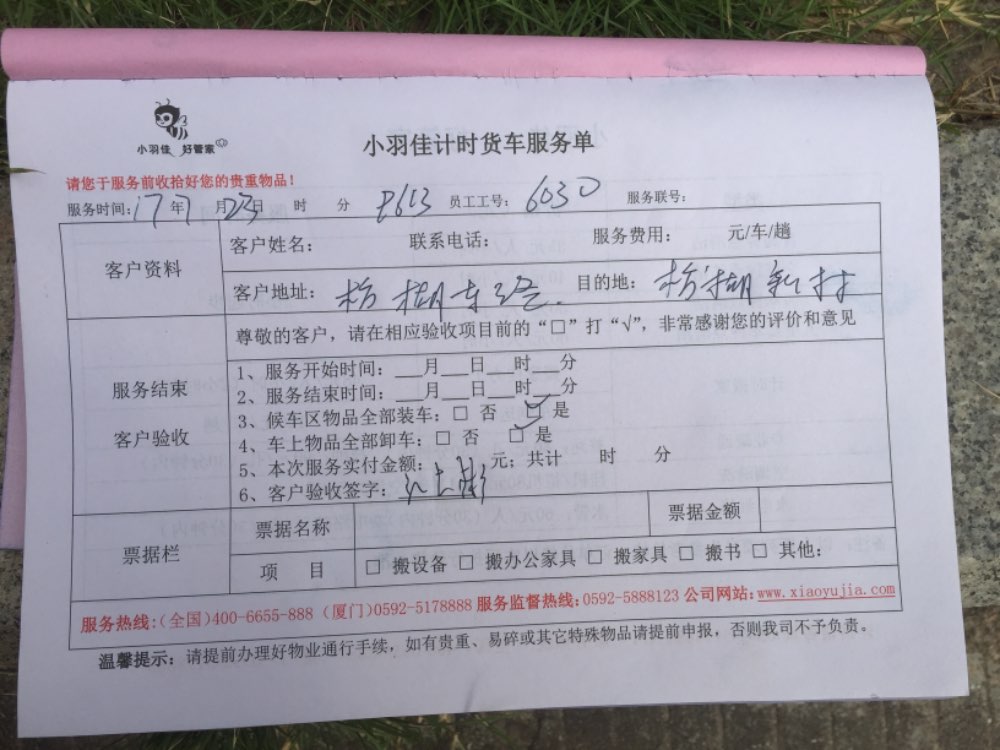 小羽佳 好管家
小羽佳计时货车服务单
请您于服务前收拾好您的贵重物品！
服务时间：17年7月23日 时 分 8613 员工工号：6030 服务联号：
客户资料
客户姓名： 联系电话： 服务费用： 元/车/趟
客户地址： 枋湖车 目的地： 枋湖新村
服务结束
客户验收
尊敬的客户，请在相应验收项目前的“□”打“√”，非常感谢您的评价和意见
1、服务开始时间：__月__日__时__分
2、服务结束时间：__月__日__时__分
3、候车区物品全部装车：□ 否 ☑ 是
4、车上物品全部卸车：□ 否 ☑ 是
5、本次服务实付金额： 元；共计 时 分
6、客户验收签字：
票据栏
票据名称 票据金额
项 目 □ 搬设备 □ 搬办公家具 □ 搬家具 □ 搬书 □ 其他：
服务热线：（全国）400-6655-888（厦门）0592-5178888 服务监督热线：0592-5888123 公司网站：www.xiaoyujia.com
温馨提示：请提前办理好物业通行手续，如有贵重、易碎或其它特殊物品请提前申报，否则我司不予负责。